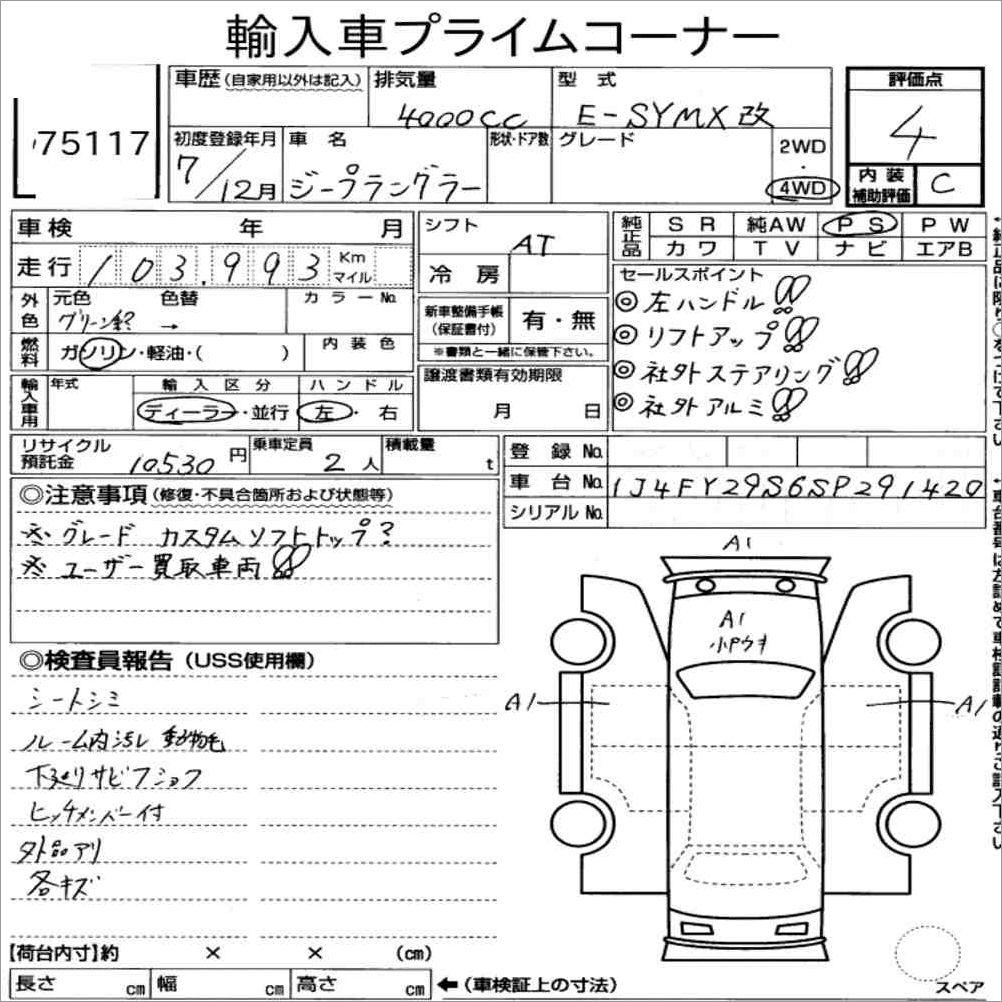 輸入車プライムコーナー
75117
車歴(自家用以外は記入)
排気量
4000cc
型 式
E-SYMX改
評価点
4
内装補助評価
C
初度登録年月
7/12月
車 名
ジープラングラー
形状・ドア数
グレード
2WD
・
4WD
車検 年 月
走行 103,993 Km マイル
外色
元色
グリーン
色替
→
カラーNo.
燃料
ガソリン・軽油・( )
内装色
輸入車用
年式
輸入区分
ディーラー・並行
ハンドル
左・右
シフト
AT
冷房
新車整備手帳(保証書付)
有・無
※書類と一緒に保管下さい。
譲渡書類有効期限
月 日
純正品
SR 純AW PS PW
カワ TV ナビ エアB
セールスポイント
◎左ハンドル!!
◎リフトアップ!!
◎社外ステアリング!!
◎社外アルミ!!
リサイクル預託金
10530円
乗車定員
2人
積載量
t
登録No.
車台No.
1J4FY29S6SP291420
シリアルNo.
◎注意事項(修復・不具合箇所および状態等)
※グレード カスタムソフトトップ?
※ユーザー買取車両!!
◎検査員報告(USS使用欄)
シートシミ
ルーム内汚レ 動物毛
下廻りサビフショク
ヒッチメンバー付
外品アリ
各キズ
A1
A1
小Pウキ
A1
A1
スペア
【荷台内寸】約 × × (cm)
長さ cm 幅 cm 高さ cm
←(車検証上の寸法)